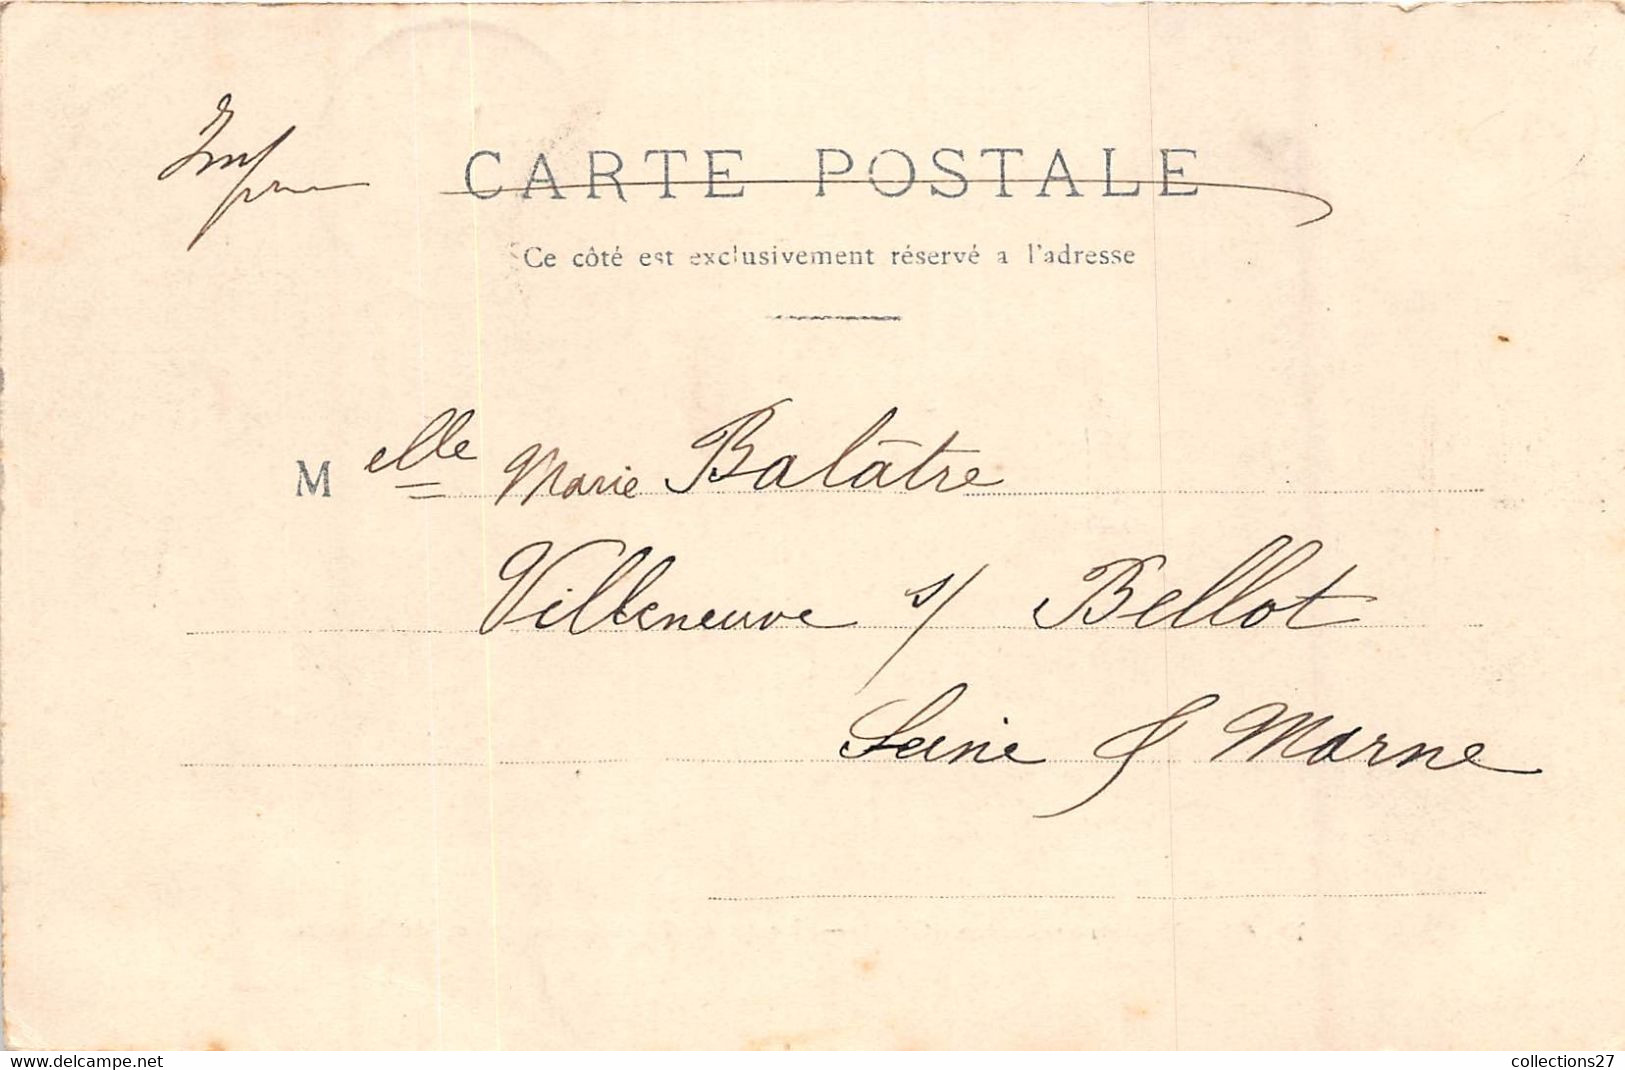 CARTE POSTALE
Ce côté est exclusivement réservé a l'adresse
Melle Marie Balâtre
Villeneuve s/ Bellot
Seine & Marne
www.delcampe.net
collections27